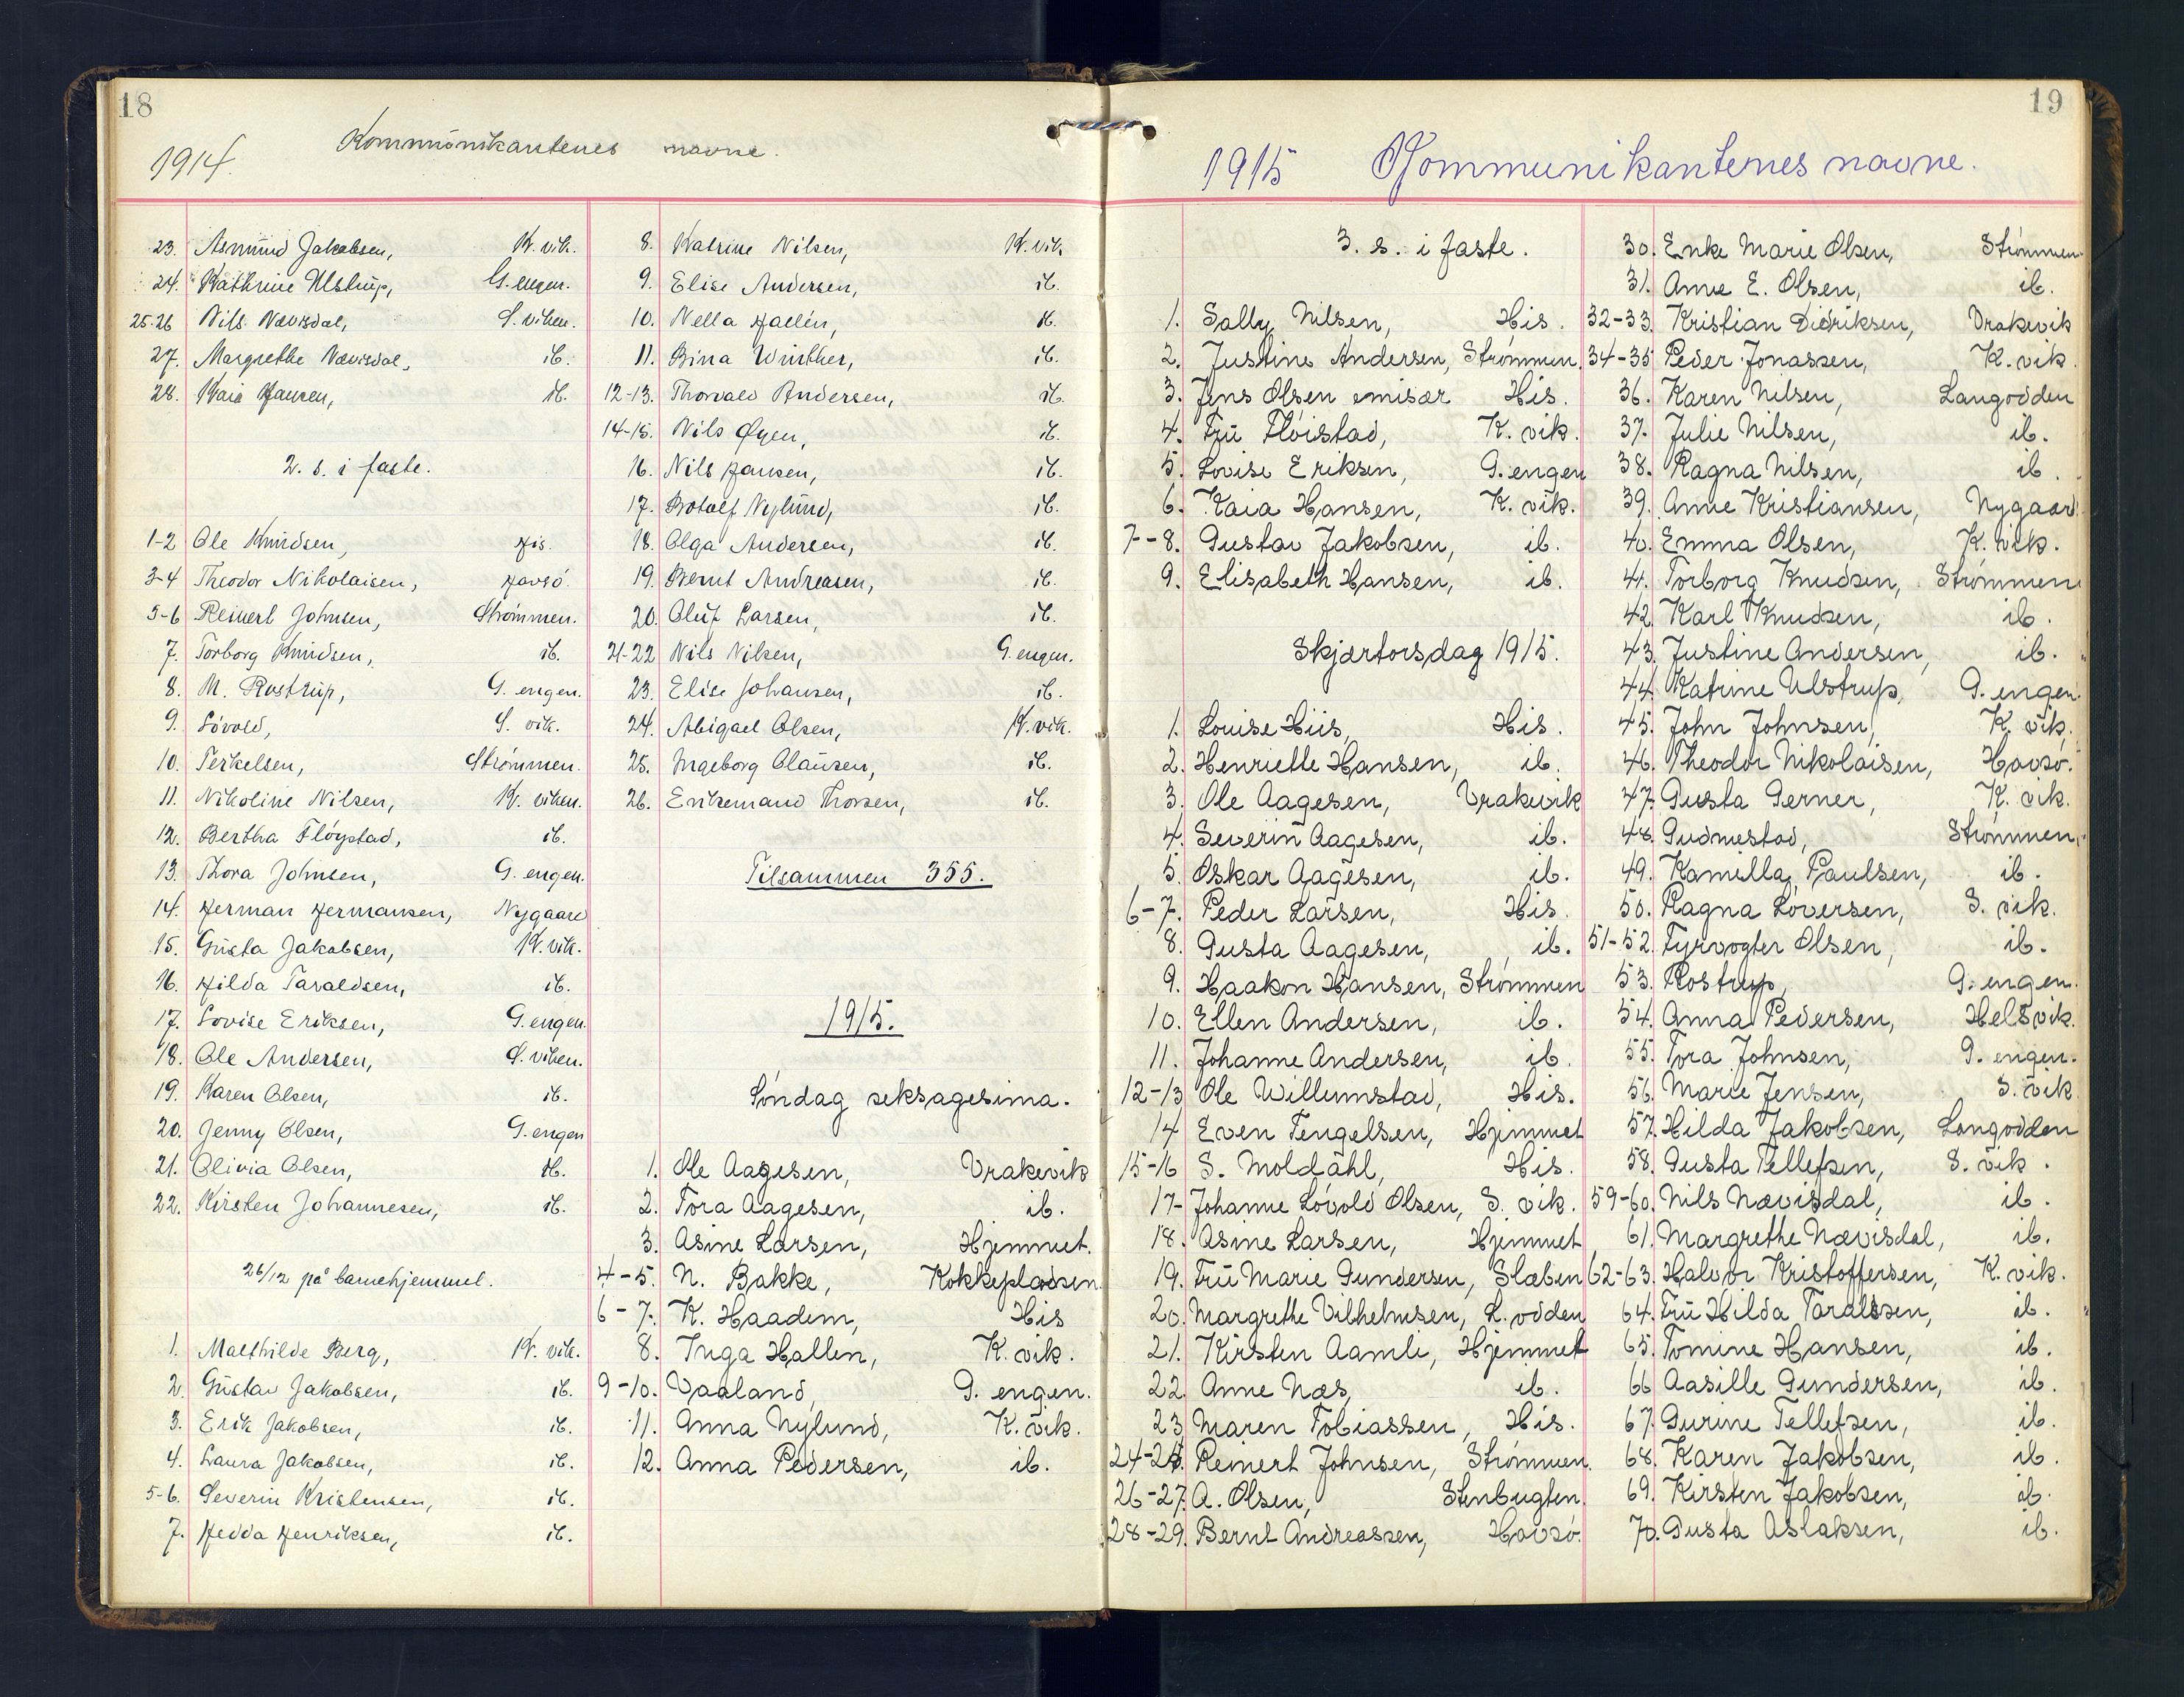 18
1914.
Kommunikantenes navne.
23. Asmund Jakobsen, K. vik.
24. Kathrine Ulstrup, G. engen.
25-26 Nils Nævisdal, S. viken.
27. Margrethe Nævisdal, ib.
28. Kaia Hansen, ib.
2. s. i faste.
1-2 Ole Knudsen, His.
3-4 Theodor Nikolaisen, Havsö.
5-6 Reinert Johnsen, Strömmen.
7. Torborg Knudsen, ib.
8. M. Rostrup, G. engen.
9. Lövold, S. vik.
10. Terkelsen, Strömmen.
11. Nikoline Nilsen, K. viken.
12. Bertha Flöystad, ib.
13. Thora Johnsen, G. engen.
14. Herman Hermansen, Nygaard
15. Gusta Jakobsen, K. vik.
16. Hilda Taraldsen, ib.
17. Lovise Eriksen, G. engen.
18. Ole Andersen, S. viken.
19. Karen Olsen, ib.
20. Jenny Olsen, G. engen
21. Olivia Olsen, ib.
22. Kirsten Johannesen, ib.
26/12 på barnehjemmet.
1. Malthilde Berg, K. vik.
2. Gustav Jakobsen, ib.
3. Erik Jakobsen, ib.
4. Laura Jakobsen, ib.
5-6. Severin Kristensen, ib.
7. Hedda Henriksen, ib.
8. Katrine Nilsen, K. vik.
9. Elise Andersen, ib.
10. Nella Hallén, ib.
11. Bina Winther, ib.
12-13. Thorvald Andersen, ib.
14-15. Nils Öyen, ib.
16. Nils Hansen, ib.
17. Botolf Nylund, ib.
18. Olga Andersen, ib.
19. Bernt Andreasen, ib.
20. Oluf Larsen, ib.
21-22 Nils Nilsen, G. engen.
23. Elise Johansen, ib.
24. Abigael Olsen, K. vik.
25. Ingeborg Clausen, ib.
26. Enkemand Thorsen, ib.
Tilsammen 355.
1915.
Söndag seksagesima.
1. Ole Aagesen, Vrakevik
2. Tora Aagesen, ib.
3. Asine Larsen, Hjemmet.
4-5. N. Bakke, Kokkepladsen.
6-7. K. Haadem, His
8. Inga Hallen, K. vik.
9-10. Vaaland, G. engen.
11. Anna Nylund, K. vik.
12. Anna Pedersen, ib.
19
1915 Kommunikantenes navne.
3. s. i faste.
1. Sally Nilsen, His.
2. Justine Andersen, Strömmen.
3. Jens Olsen emisær His.
4. Fru Flöistad, K. vik.
5. Lovise Eriksen, G. engen
6. Kaia Hansen, K. vik.
7-8. Gustav Jakobsen, ib.
9. Elisabeth Hansen, ib.
Skjærtorsdag 1915.
1. Louise Hiis, His.
2. Henriette Hansen, ib.
3. Ole Aagesen, Vrakevik
4. Severin Aagesen, ib.
5. Oskar Aagesen, ib.
6-7. Peder Larsen, His.
8. Gusta Aagesen, ib.
9. Haakon Hansen, Strömmen
10. Ellen Andersen, ib.
11. Johanne Andersen, ib.
12-13 Ole Willumstad, His.
14 Even Tengelsen, Hjemmet
15-16 S. Moldåhl, His.
17- Johanne Lövold Olsen, S. vik.
18. Asine Larsen, Hjemmet
19. Fru Marie Gundersen, Slæben
20. Margrethe Vilhelmsen, L. odden
21. Kirsten Aamli, Hjemmet
22. Anne Næs, ib.
23 Maren Tobiassen, His.
24-25. Reinert Johnsen, Strömmen.
26-27. A. Olsen, Stenbugten.
28-29. Bernt Andreassen, Havsö.
30. Enke Marie Olsen, Strömmen
31. Anne E. Olsen, ib.
32-33. Kristian Didriksen, Vrakevik
34-35 Peder Jonassen, K. vik.
36. Karen Nilsen, Langodden
37. Julie Nilsen, ib.
38. Ragna Nilsen, ib.
39. Anne Kristiansen, Nygaard.
40. Emma Olsen, K. vik.
41. Torborg Knudsen, Strömmen
42. Karl Knudsen, ib.
43. Justine Andersen, ib.
44. Katrine Ulstrup, G. engen.
45. John Johnsen, K. vik.
46. Theodor Nikolaisen, Havsö.
47. Gusta Gerner, K. vik.
48. Gudmestad, Strömmen.
49. Kamilla Paulsen, ib.
50. Ragna Loversen, S. vik.
51-52. Fyrvogter Olsen, ib.
53. Rostrup, G. engen.
54. Anna Pedersen, Helsvik.
55. Tora Johnsen, G. engen.
56. Marie Jensen, S. vik
57. Hilda Jakobsen, Langodden
58. Gusta Tellefsen, S. vik.
59-60. Nils Nævisdal, ib.
61. Margrethe Nævisdal, ib.
62-63. Halvor Kristoffersen, K. vik.
64. Fru Hilda Taraldsen, ib.
65. Tomine Hansen, ib.
66 Aasille Gundersen, ib.
67. Gurine Tellefsen, ib.
68. Karen Jakobsen, ib.
69. Kirsten Jakobsen, ib.
70. Gusta Aslaksen, ib.